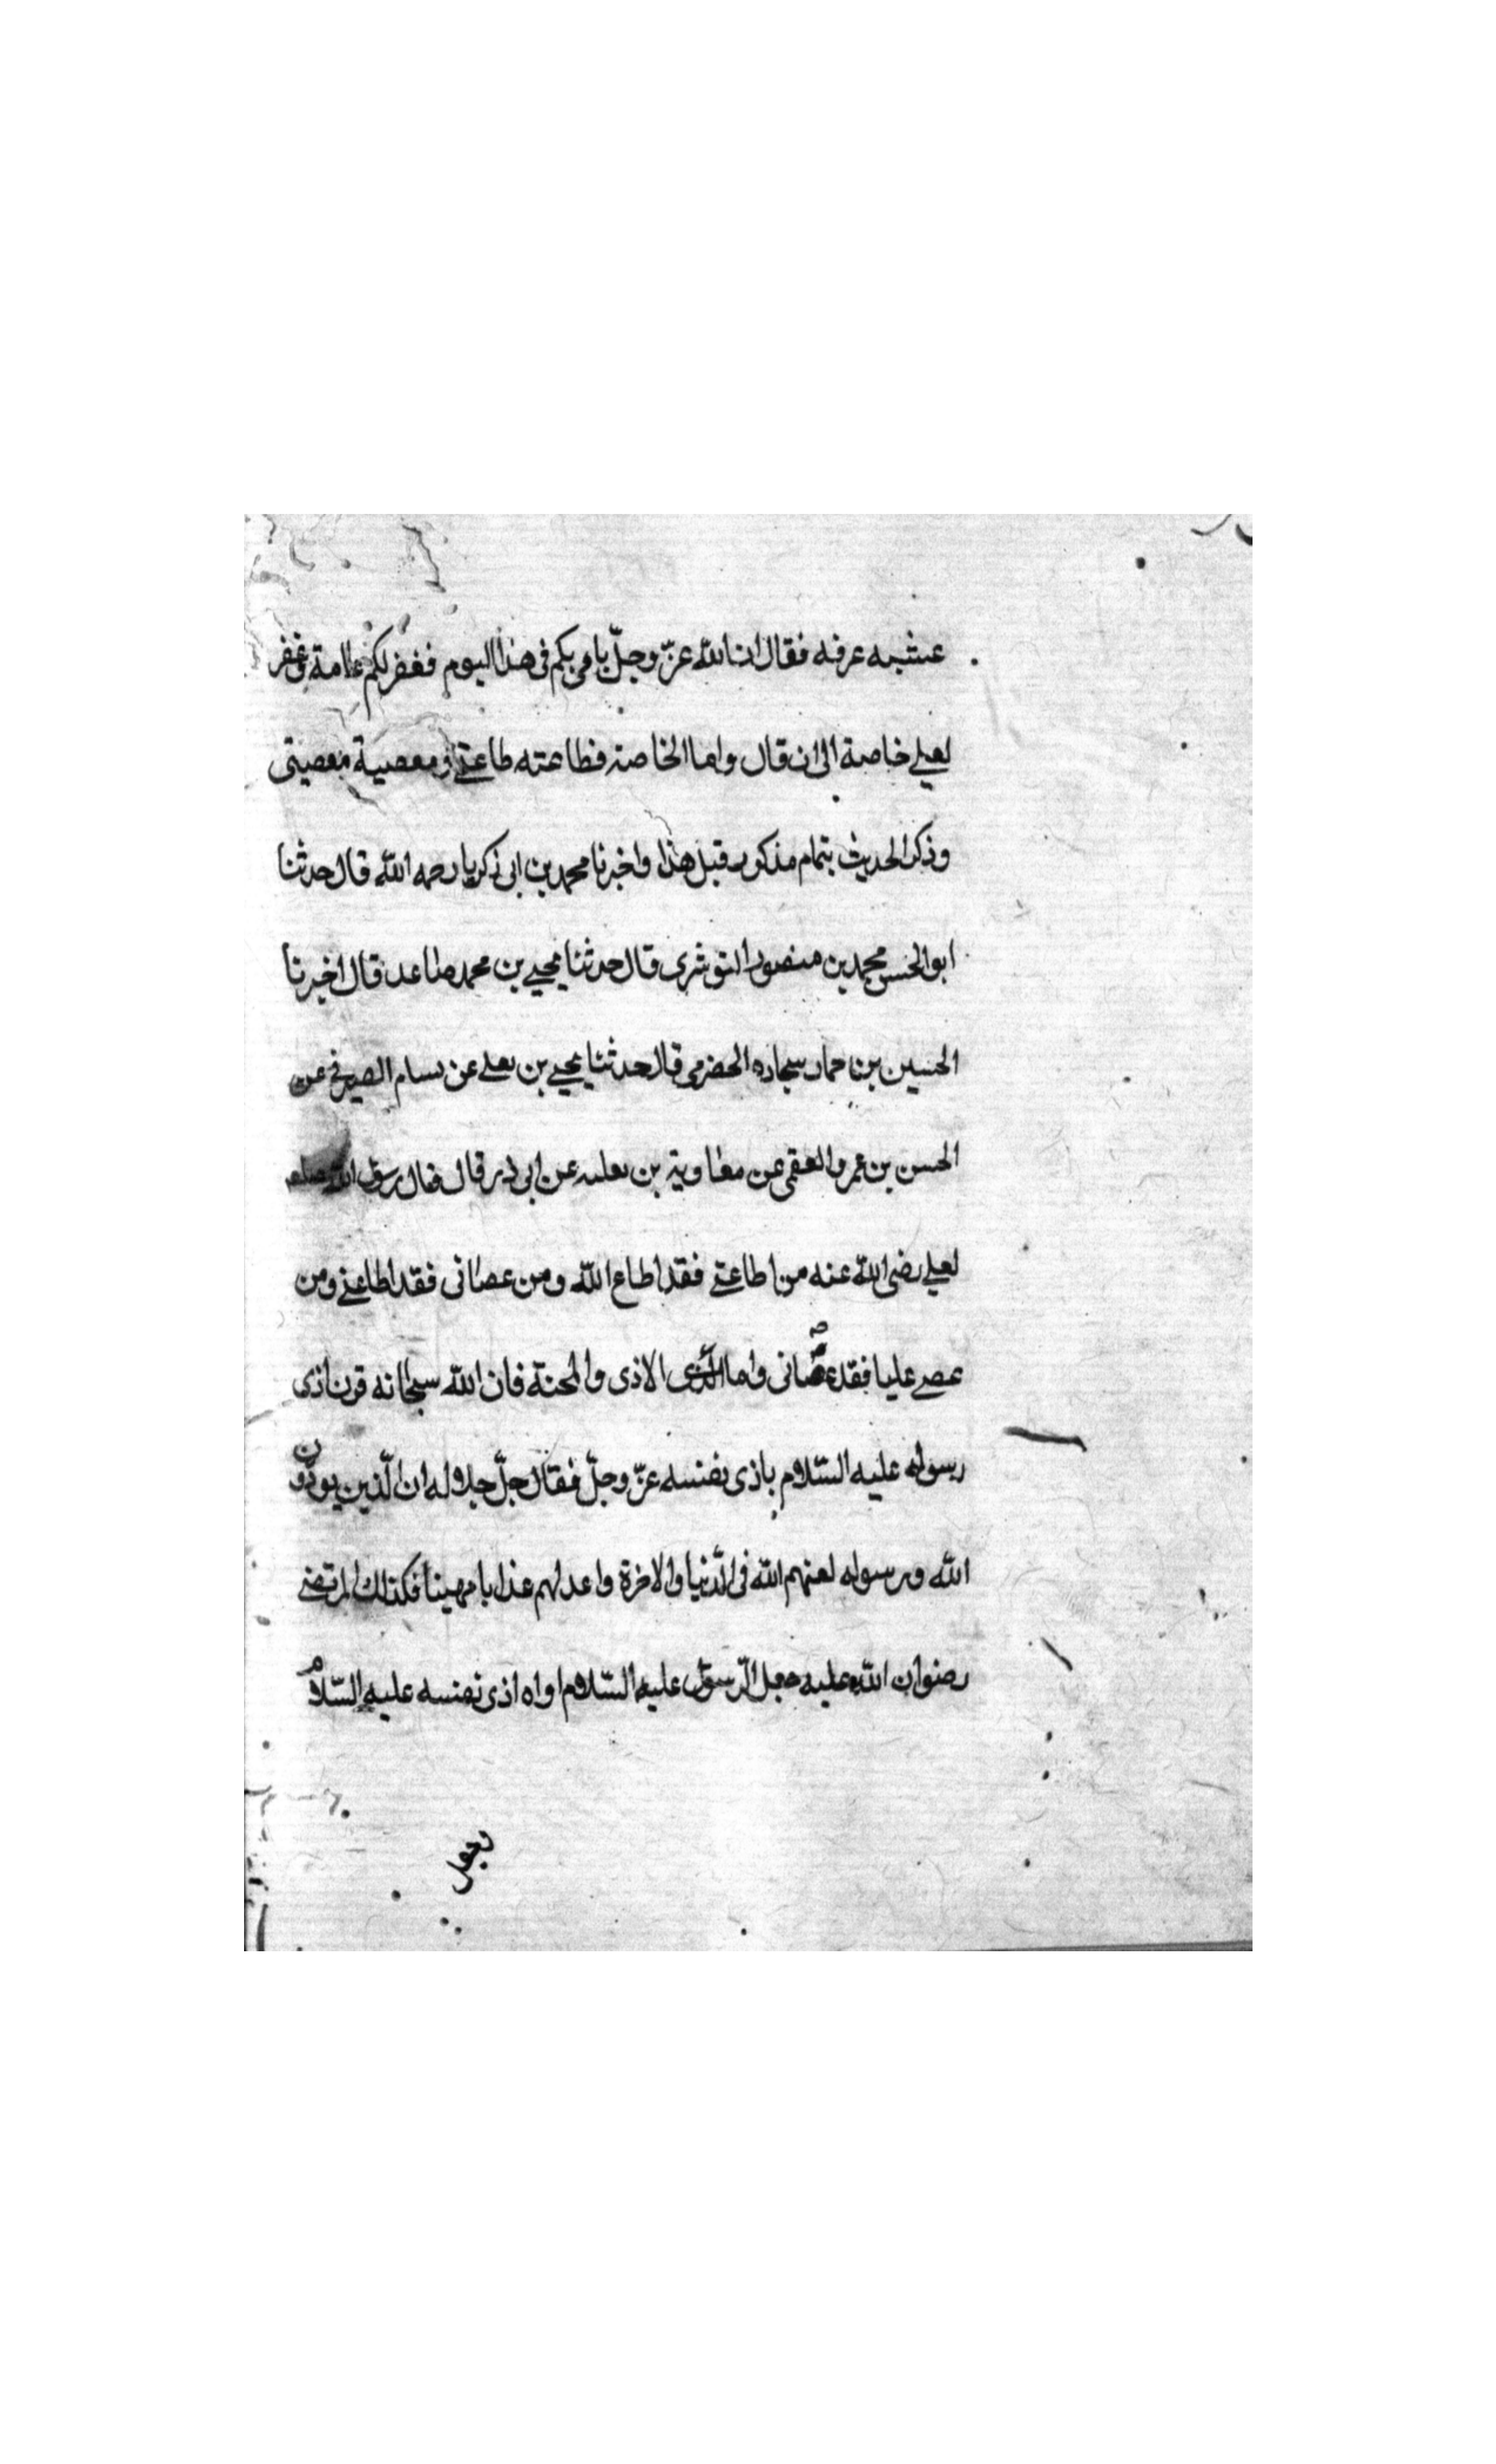 عشيه عرفه فقال ان الله عزّ وجلّ باهى بكم فى هذا اليوم فغفر لكم عامة وغفر
لعلي خاصة الى ان قال واما الخاصة فطاعته طاعتي ومعصية معصيتى
وذكر الحديث بتمام مذكور قبل هذا واخبرنا محمد بن ابى زكريا رحمه الله قال حدثنا
ابو الحسن محمد بن منصور النوشرى قال حدثنا يحيى بن محمد صاعد قال اخبرنا
الحسين بن حماد سجاده الحضرمى قال حدثنا يحيى بن يعلى عن بسام الصيرفي عن
الحسن بن عمرو الفقمى عن معاوية بن ثعلبه عن ابى ذر قال قال رسول الله صلعم
لعلي رضى الله عنه من اطاعنى فقد اطاع الله ومن عصانى فقد اطاعني ومن
عصى عليا فقد عصانى واما الاذى والمحنة فان الله سبحانه قرن اذى
رسوله عليه السّلام باذى نفسه عزّ وجلّ فقال جلّ جلاله ان الّذين يوذون
الله ورسوله لعنهم الله فى الدّنيا والاخرة واعد لهم عذابا مهينا فكذلك المرتضى
رضوان الله عليه جعل الرّسول عليه السّلام اذاه اذى نفسه عليه السّلام